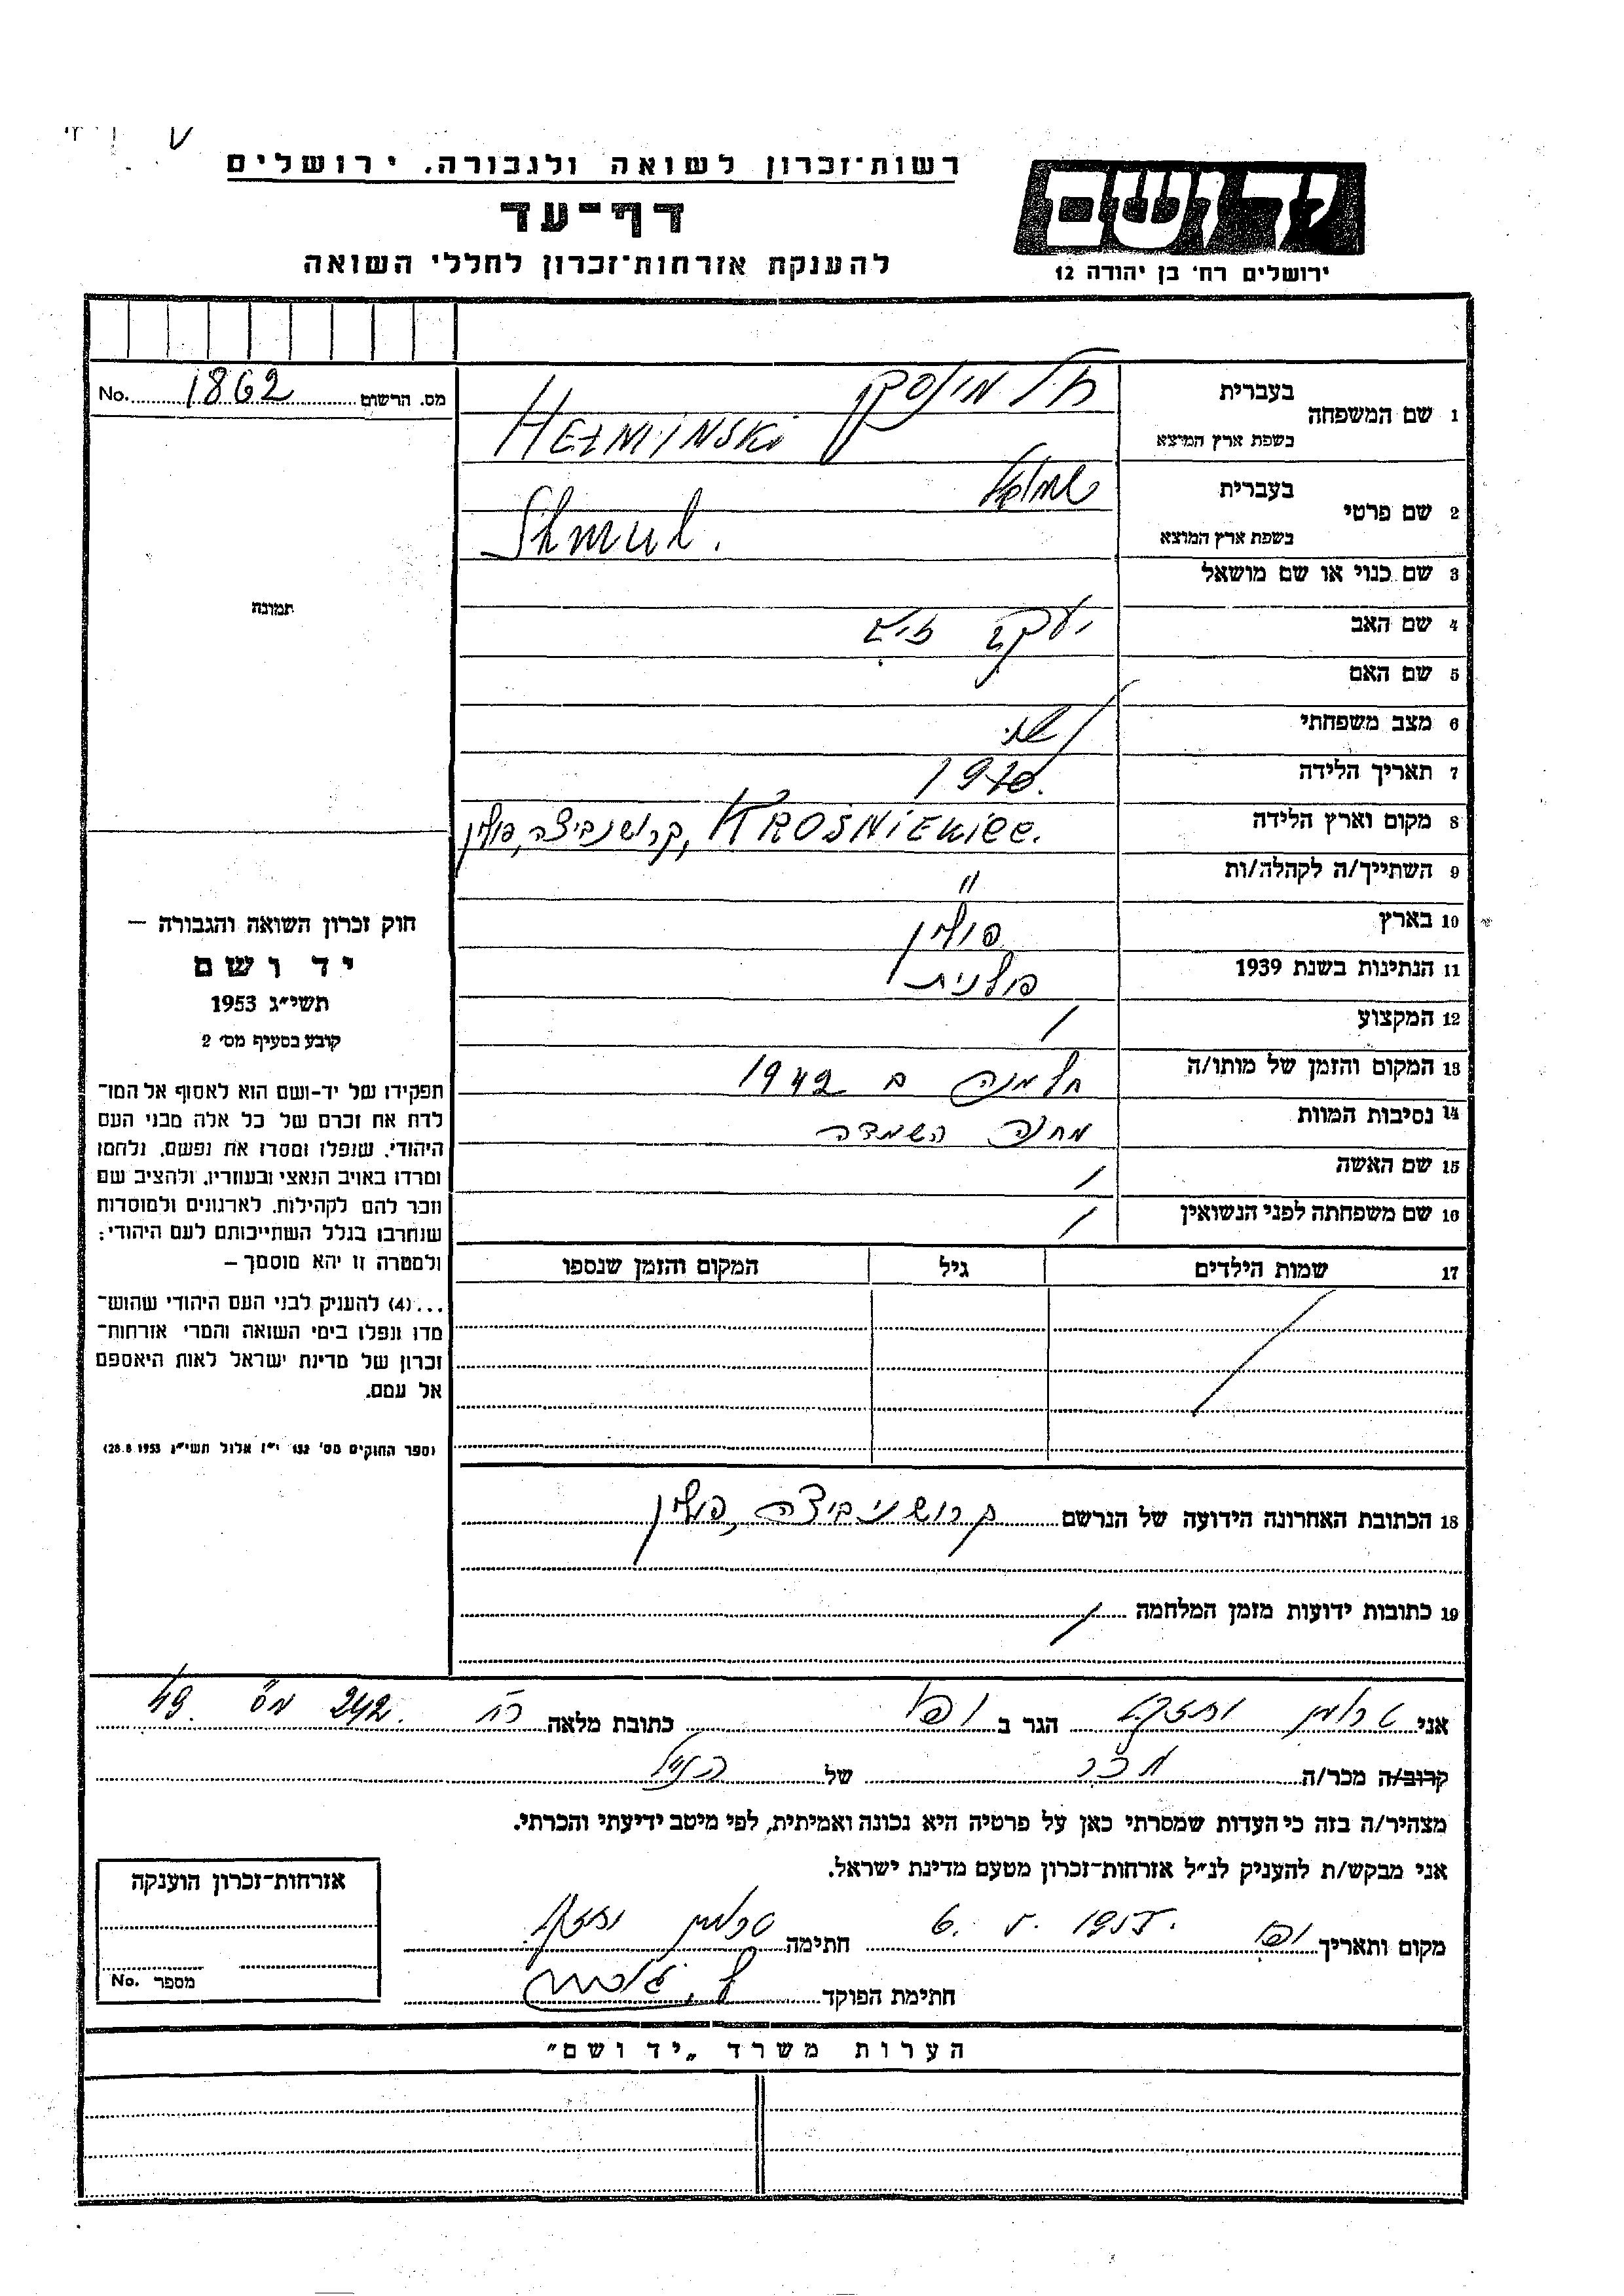 רשות־זכרון לשואה ולגבורה. ירושלים
דף־עד
להענקת אזרחות־זכרון לחללי השואה
יד ושם
ירושלים רח' בן יהודה 12
מס. הרשום 1862 No.
תמונה
1 שם המשפחה בעברית חלמינסקי
בשפת ארץ המוצא HEŁMINSKI
2 שם פרטי בעברית שמואל
בשפת ארץ המוצא Shmul.
3 שם כנוי או שם מושאל
4 שם האב יעקב
5 שם האם
6 מצב משפחתי
7 תאריך הלידה
8 מקום וארץ הלידה KROŚNIEWICE. קרושניביצה, פולין
9 השתייך/ה לקהלה/ות "
10 בארץ פולין
11 הנתינות בשנת 1939 פולנית
12 המקצוע /
13 המקום והזמן של מותו/ה חלמנה ב 1942
14 נסיבות המוות מחנה השמדה
15 שם האשה /
16 שם משפחתה לפני הנשואין /
17 שמות הילדים גיל המקום והזמן שנספו
18 הכתובת האחרונה הידועה של הנרשם קרושניביצה, פולין
19 כתובות ידועות מזמן המלחמה /
חוק זכרון השואה והגבורה —
יד ושם
תשי״ג 1953
קובע בסעיף מס׳ 2
תפקידו של יד-ושם הוא לאסוף אל המו־
לדת את זכרם של כל אלה מבני העם
היהודי, שנפלו ומסרו את נפשם, נלחמו
ומרדו באויב הנאצי ובעוזריו, ולהציב שם
וזכר להם לקהילות, לארגונים ולמוסדות
שנחרבו בגלל השתייכותם לעם היהודי;
ולמטרה זו יהא מוסמך —
...(4) להעניק לבני העם היהודי שהוש־
מדו ונפלו בימי השואה והמרי אזרחות־
זכרון של מדינת ישראל לאות היאספם
אל עמם.
(ספר החוקים מס' 132 י״ז אלול תשי״ג 28.8.1953)
אני הגר ב יפו כתובת מלאה רח 242 מס 49.
קרוב/ה מכר/ה מכר של הנ״ל
מצהיר/ה בזה כי העדות שמסרתי כאן על פרטיה היא נכונה ואמיתית, לפי מיטב ידיעתי והכרתי.
אני מבקש/ת להעניק לנ״ל אזרחות-זכרון מטעם מדינת ישראל.
מקום ותאריך יפו 6. 5. 1955. חתימה
חתימת הפוקד
אזרחות-זכרון הוענקה
מספר No.
הערות משרד „יד ושם״